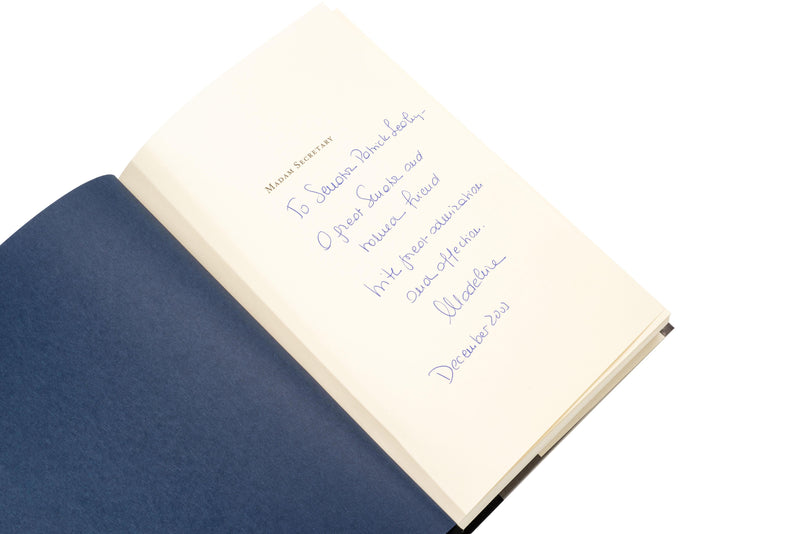 MADAM SECRETARY
To Senator Patrick Leahy-
A great Senator and
friend
With great admiration
and affection.
Madeleine
December 2003